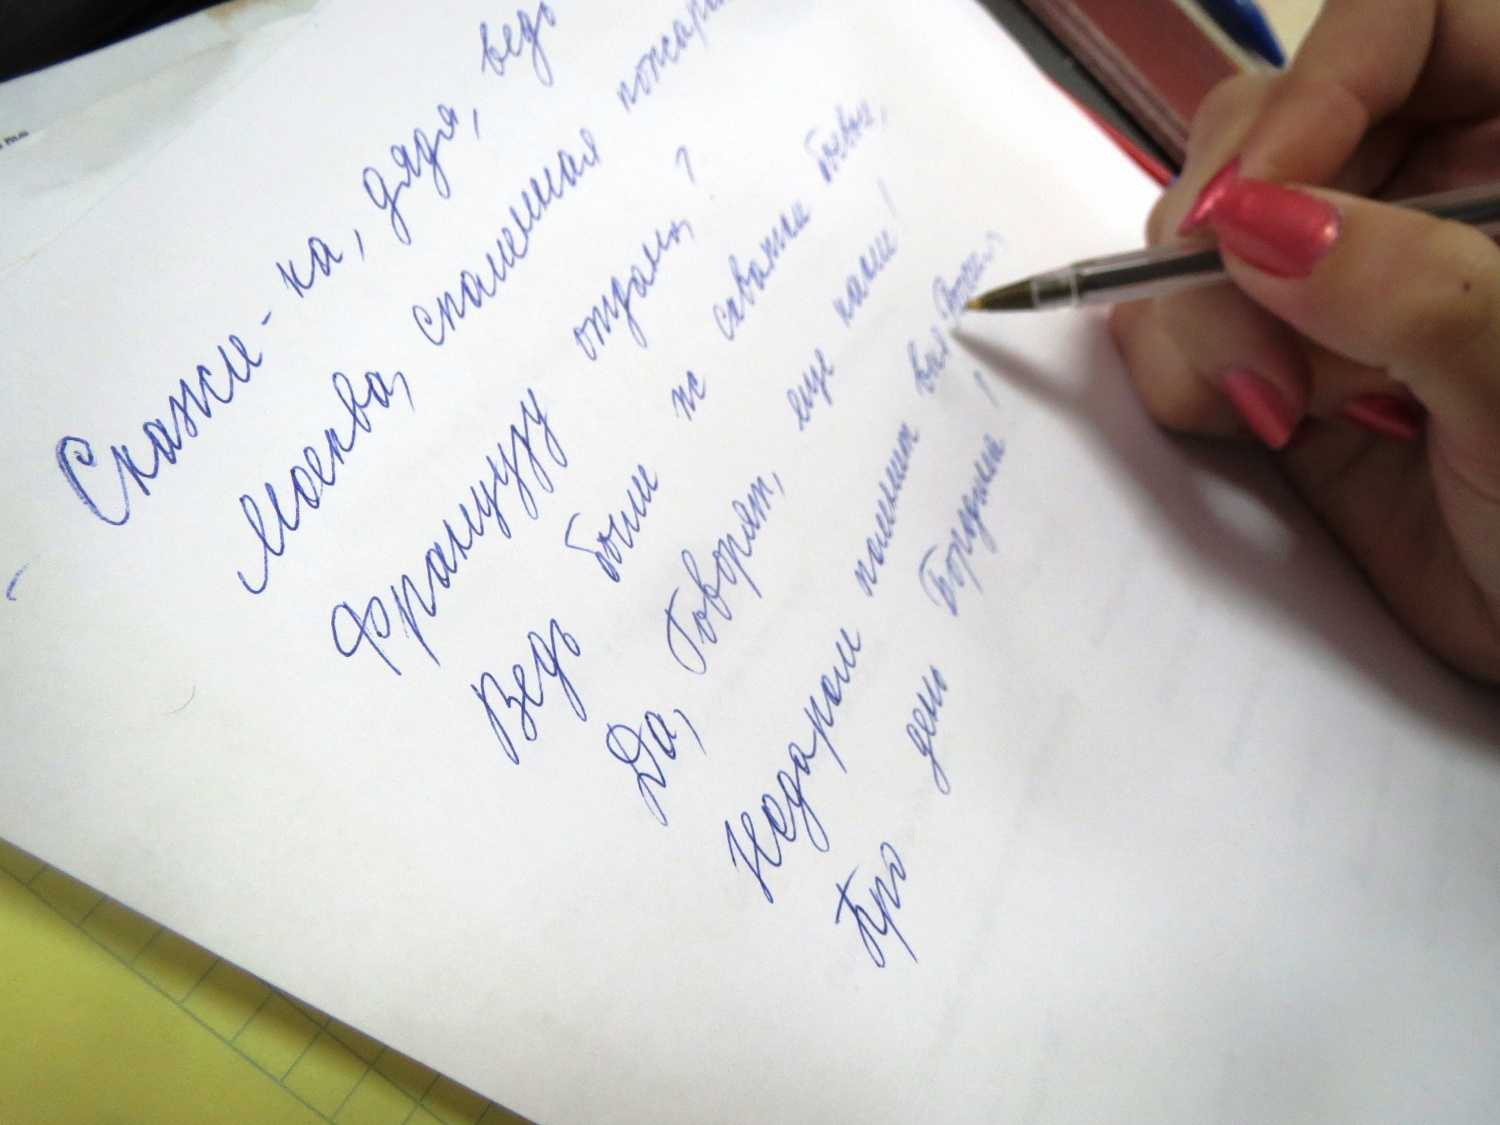 Скажи-ка, дядя, ведь
Москва, спаленная пожаром
Французу отдана?
Ведь были ж схватки боевые,
Да, говорят, еще какие!
Недаром помнит вся Россия
Про день Бородина!